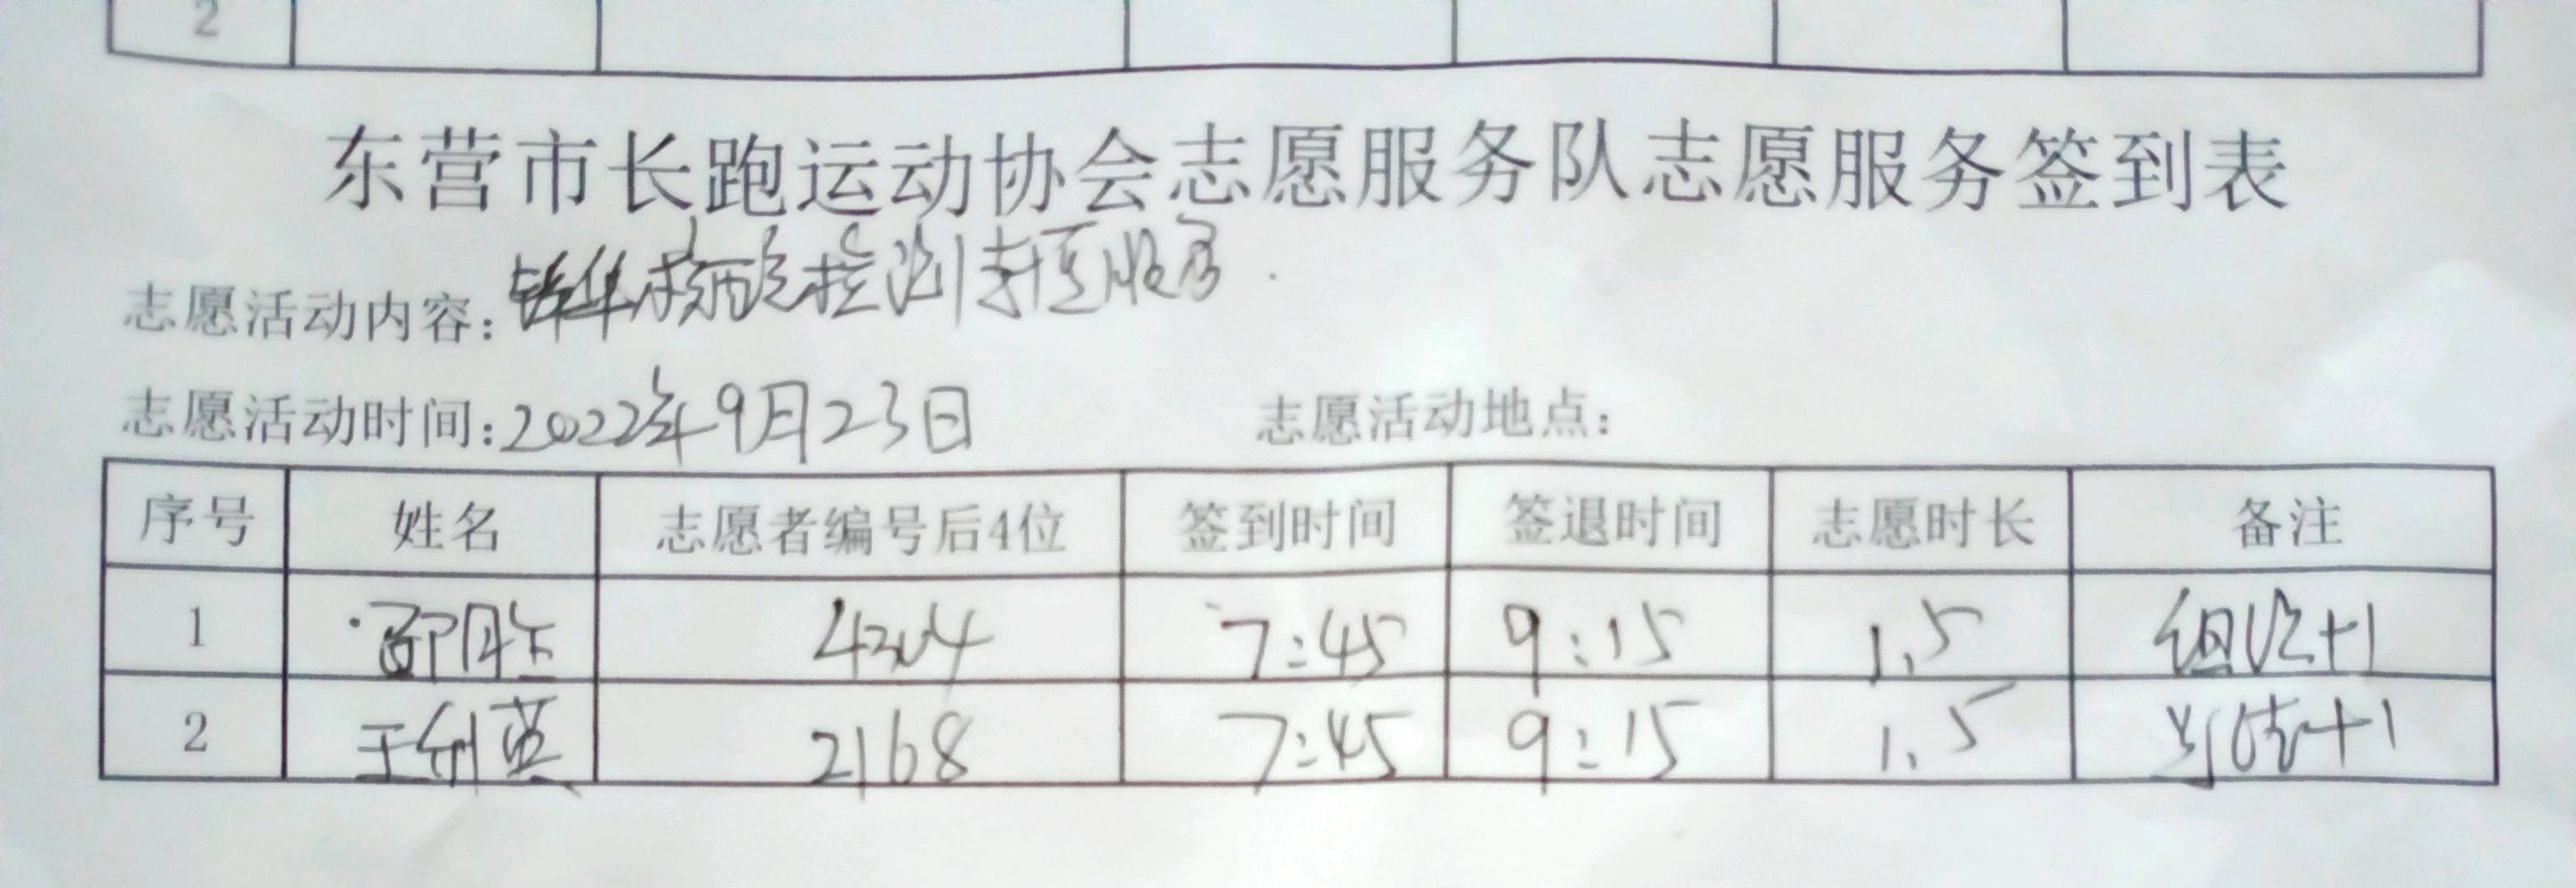 2
东营市长跑运动协会志愿服务队志愿服务签到表
志愿活动内容：锦华核酸检测志愿服务.
志愿活动时间：2022年9月23日 志愿活动地点：
序号 姓名 志愿者编号后4位 签到时间 签退时间 志愿时长 备注
1 邵胜 4304 7:45 9:15 1.5 组织+1
2 王利英 2168 7:45 9:15 1.5 +1